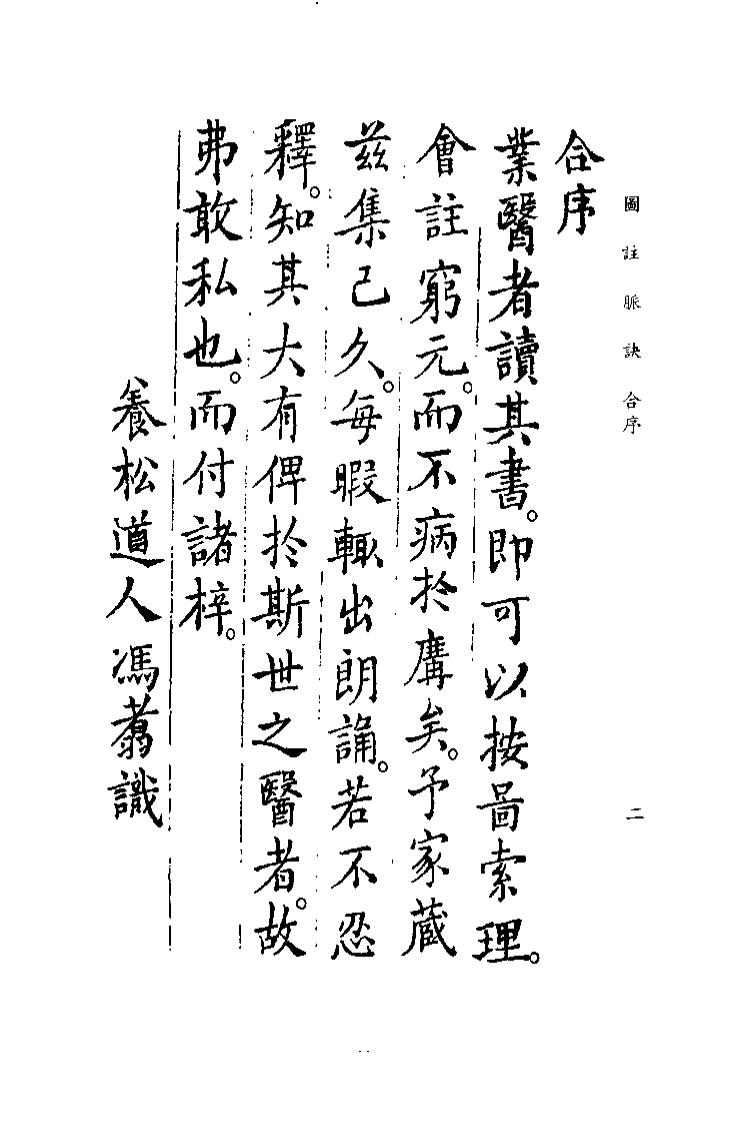 圖註脈訣 合序
二
合序
業醫者讀其書。即可以按啚索理。
會註窮元。而不病於膚矣。予家藏
茲集已久。每暇輒出朗誦。若不忍
釋。知其大有俾於斯世之醫者。故
弗敢私也。而付諸梓。
養松道人馮翥識